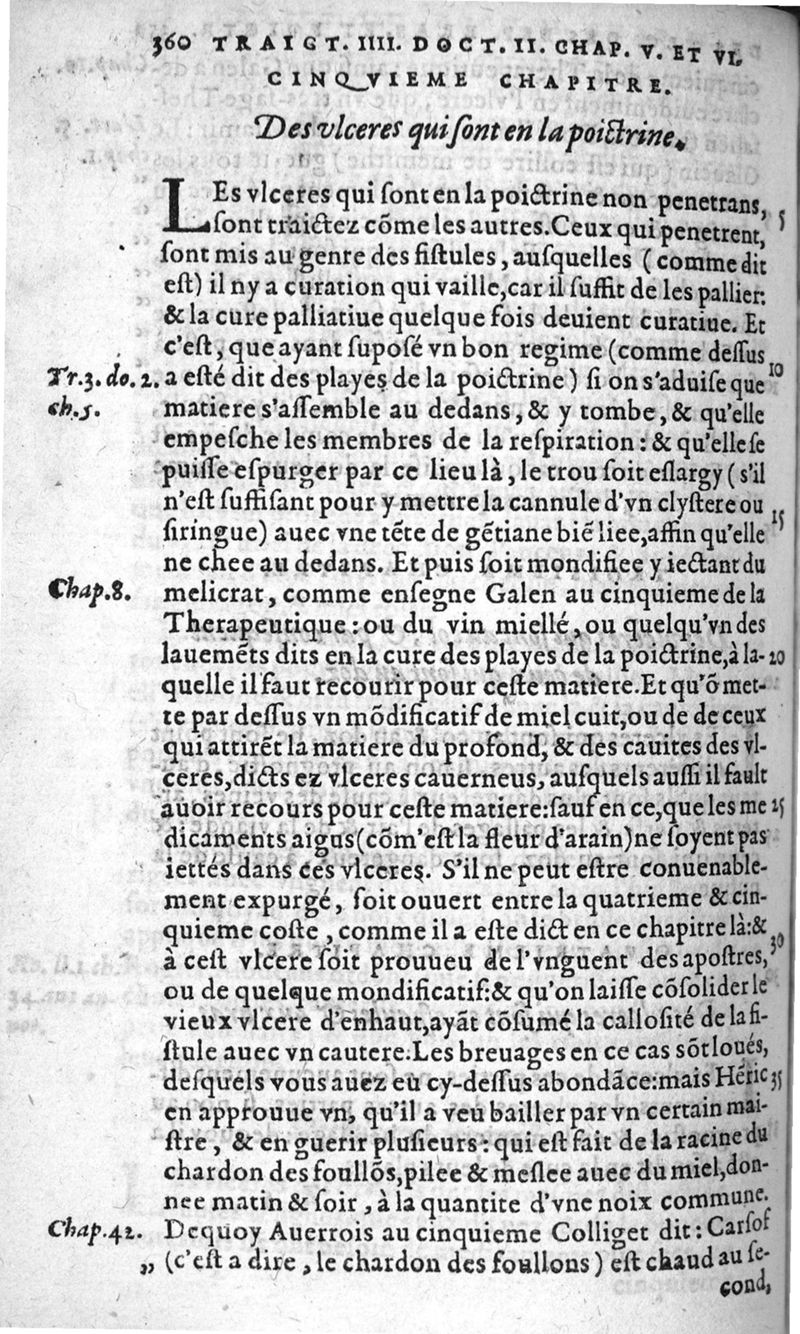 360 TRAICT. IIII. DOCT. II. CHAP. V. ET VI.
CINQVIEME CHAPITRE.
Des vlceres qui ſont en la poictrine.
LEs vlceres qui ſont en la poictrine non penetrans,
ſont traictez cõme les autres. Ceux qui penetrent, 5
ſont mis au genre des fiſtules, auſquelles (comme dit
eſt) il ny a curation qui vaille, car il ſuffit de les pallier:
& la cure palliatiue quelque fois deuient curatiue. Et
c'eſt, que ayant ſupoſé vn bon regime (comme deſſus
Tr.3. do. 2. a eſté dit des playes de la poictrine) ſi on s'aduiſe que 10
ch.5. matiere s'aſſemble au dedans, & y tombe, & qu'elle
empeſche les membres de la reſpiration: & qu'elle ſe
puiſſe eſpurger par ce lieu là, le trou ſoit eſlargy (s'il
n'eſt ſuffiſant pour y mettre la cannule d'vn clyſtere ou
ſiringue) auec vne tẽte de gẽtiane biẽ liee, affin qu'elle 15
ne chee au dedans. Et puis ſoit mondifiee y iectant du
Chap.8. melicrat, comme enſegne Galen au cinquieme de la
Therapeutique: ou du vin miellé, ou quelqu'vn des
lauemẽts dits en la cure des playes de la poictrine, à la- 20
quelle il faut recourir pour ceſte matiere. Et qu'õ met-
te par deſſus vn mõdificatif de miel cuit, ou de de ceux
qui attirẽt la matiere du profond, & des cauites des vl-
ceres, dicts ez vlceres cauerneus, auſquels auſſi il fault
auoir recours pour ceſte matiere: ſauf en ce, que les me 25
dicaments aigus (cõm'eſt la fleur d'arain) ne ſoyent pas
iettés dans ces vlceres. S'il ne peut eſtre conuenable-
ment expurgé, ſoit ouuert entre la quatrieme & cin-
quieme coſte, comme il a eſte dict en ce chapitre là: &
à ceſt vlcere ſoit prouueu de l'vnguent des apoſtres, 30
ou de quelque mondificatif: & qu'on laiſſe cõſolider le
vieux vlcere d'enhaut, ayãt cõſumé la calloſité de la fi-
ſtule auec vn cautere. Les breuages en ce cas sõt loués,
deſquels vous auez eu cy-deſſus abondãce: mais Hẽric 35
en approuue vn, qu'il a veu bailler par vn certain mai-
ſtre, & en guerir pluſieurs: qui eſt fait de la racine du
chardon des foullõs, pilee & meſlee auec du miel, don-
nee matin & ſoir, à la quantite d'vne noix commune.
Chap.42. Dequoy Auerrois au cinquieme Colliget dit: Carſof
„ (c'eſt a dire, le chardon des foullons) eſt chaud au ſe-
cond,